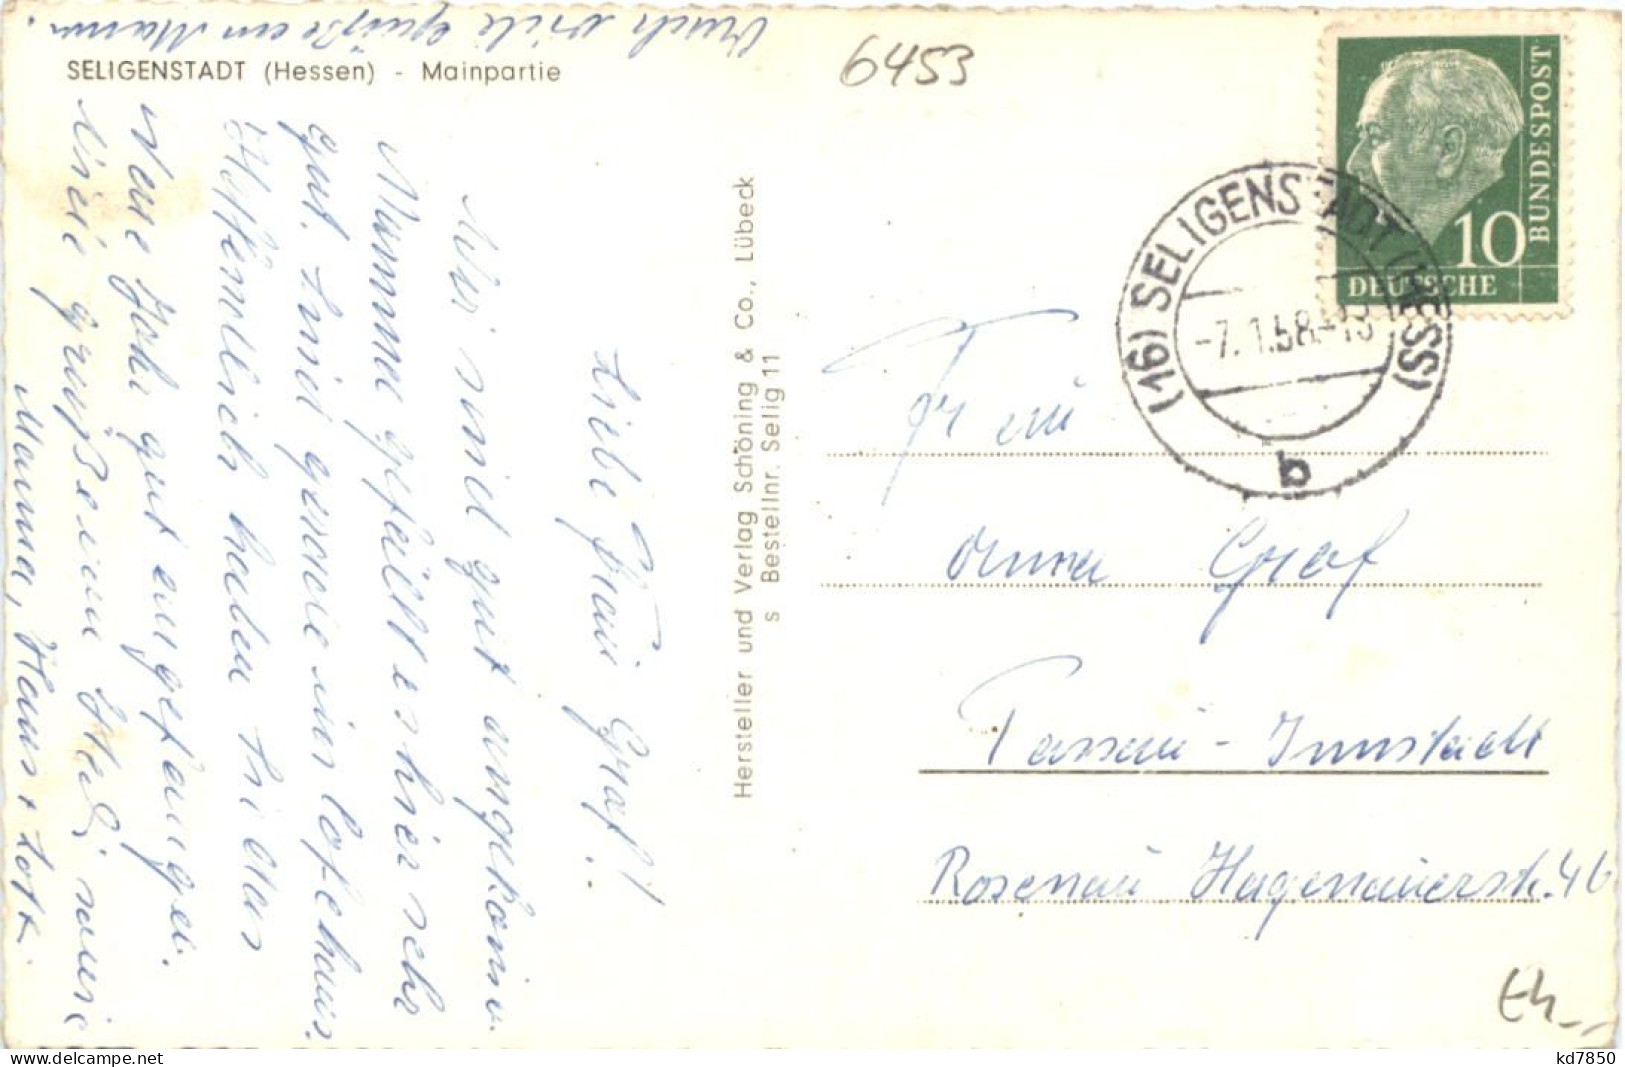 SELIGENSTADT (Hessen) - Mainpartie
6453
BUNDESPOST
10
DEUTSCHE
(16) SELIGENSTADT (HESS)
-7.1.58.-13
b
Hersteller und Verlag Schöning & Co., Lübeck
s Bestellnr. Selig 11
Liebe Frau Graf!
Wir sind gut angekomm.
Mamma gefällt es hier sehr
gut. sind gerade im
Hoffentlich haben Sie das
Neue Jahr gut angefangen.
Viele Grüße
Mamma, Hans + Lotte.
Auch viele Grüße an Mann.
Frau
Anna Graf
Passau - Innstadt
Rosenau Hagenauerstr. 46
Eh
kd7850